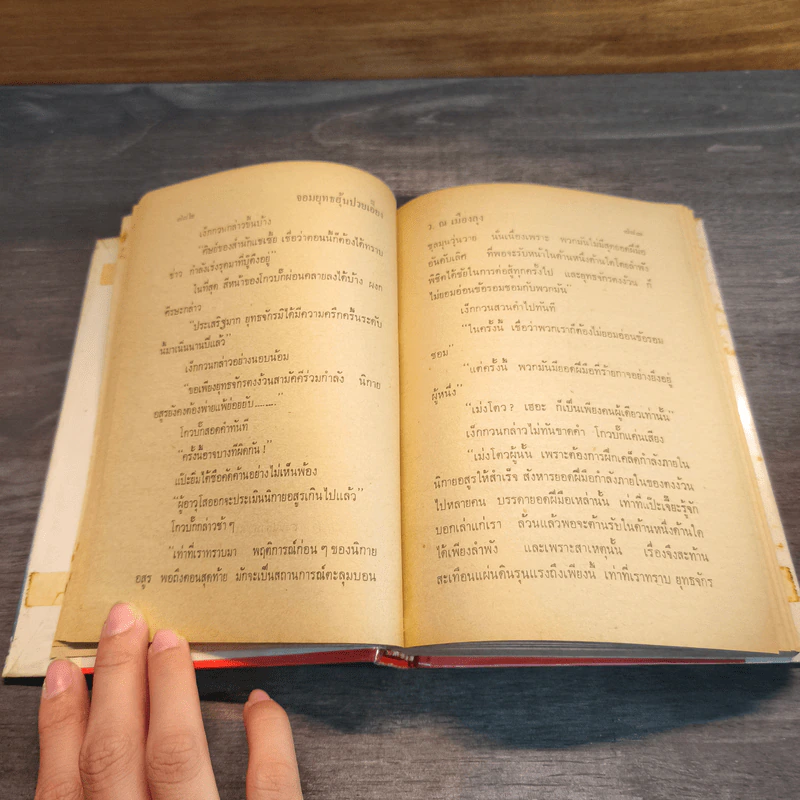 จอมยุทธอุ้มปวยเอี้ยง
เง็กกวนกล่าวขึ้นบ้าง
"ศิษย์ของสำนักแชเซ้อ เชื่อว่าตอนนี้ก็ต้องได้ทราบ
ข่าว กำลังเร่งรุดมาที่บู๊ตึ๊งอยู่"
ในที่สุด สีหน้าของโกวบั๊กผ่อนคลายลงได้บ้าง ผงก
ศีรษะกล่าว
"ประเสริฐมาก ยุทธจักรมิได้มีความครึกครื้นระดับ
นี้มาเนิ่นนานปีแล้ว"
เง็กกวนกล่าวอย่างนอบน้อม
"ขอเพียงยุทธจักรตงง้วนสามัคคีร่วมกำลัง นิกาย
อสูรยังคงต้องพ่ายแพ้ย่อยยับ........"
โกวบั๊กสอดคำทันที
"ครั้งนี้อาจบางทีผิดกัน!"
แป๊ะยิ้มไต้ซือคัดค้านอย่างไม่เห็นพ้อง
"ผู้อาวุโสออกจะประเมินนิกายอสูรเกินไปแล้ว"
โกวบั๊กกล่าวช้า ๆ
"เท่าที่เราทราบมา พฤติการณ์ก่อน ๆ ของนิกาย
อสูร พอถึงตอนสุดท้าย มักจะเป็นสถานการณ์ตะลุมบอน
ว. ณ เมืองลุง
ชุลมุนวุ่นวาย นั่นเนื่องเพราะ พวกมันไม่มีสุดยอดฝีมือ
อันดับเลิศ ที่พอจะรับหน้าในด้านหนึ่งด้านใดโดยลำพัง
พิชิตได้ชัยในการต่อสู้ทุกครั้งไป และยุทธจักรตงง้วน ก็
ไม่ยอมอ่อนข้อรอมชอมกับพวกมัน"
เง็กกวนสวนคำไปทันที
"ในครั้งนี้ เชื่อว่าพวกเราก็ต้องไม่ยอมอ่อนข้อรอม
ชอม"
"แต่ครั้งนี้ พวกมันมียอดฝีมือที่ร้ายกาจอย่างยิ่งอยู่
ผู้หนึ่ง"
"เม่งโตว? เฮอะ ก็เป็นเพียงคนผู้เดียวเท่านั้น"
เง็กกวนกล่าวไม่ทันขาดคำ โกวบั๊กแค่นเสียง
"เม่งโตวผู้นั้น เพราะต้องการฝึกเคล็ดกำลังภายใน
นิกายอสูรให้สำเร็จ สังหารยอดฝีมือกำลังภายในของตงง้วน
ไปหลายคน บรรดายอดฝีมือเหล่านั้น เท่าที่แป๊ะเจี๊ยะรู้จัก
บอกเล่าแก่เรา ล้วนแล้วพอจะต้านรับในด้านหนึ่งด้านใด
ได้เพียงลำพัง และเพราะสาเหตุนั้น เรื่องจึงสะท้าน
สะเทือนแผ่นดินรุนแรงถึงเพียงนี้ เท่าที่เราทราบ ยุทธจักร